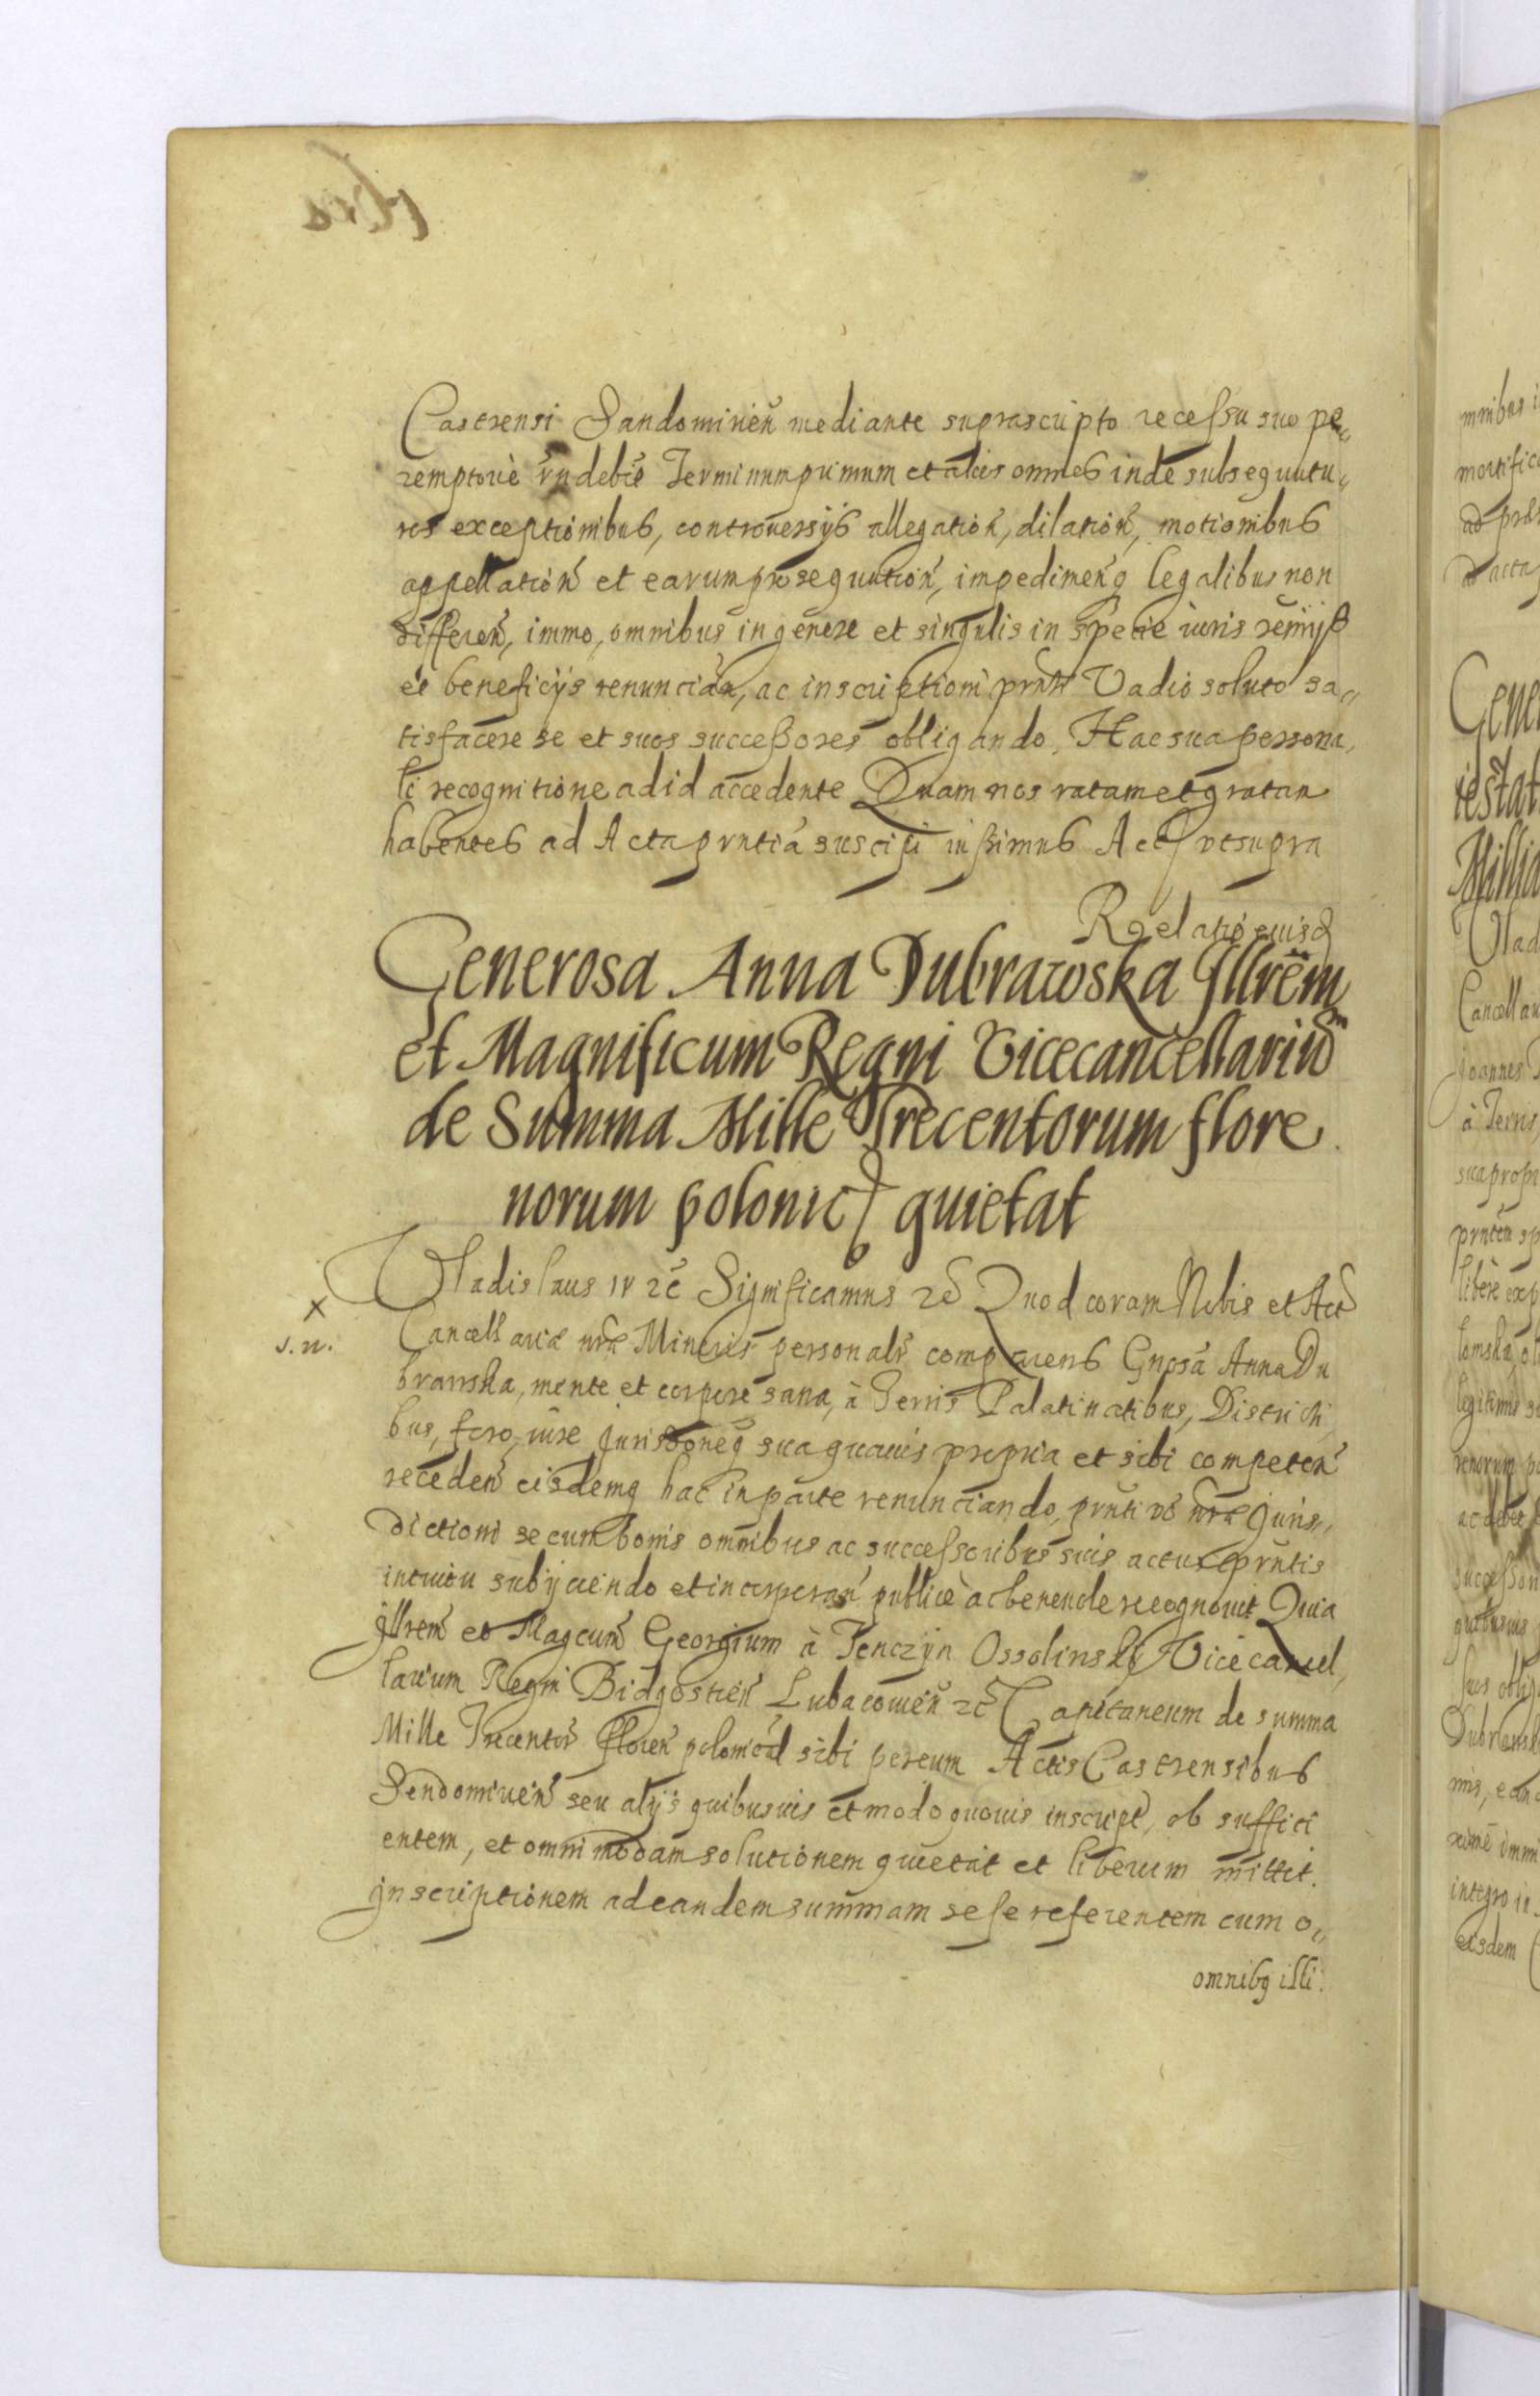 Castrensi Sandomirien̄ mediante suprascripto recessu suo pe„
remptorie rn̄debit Terminum primum et alios omnes inde subsequutu„
ros exceptionibus, controuersijs allegation̄, dilation̄, motionibus
appellation̄ et earum prosequution̄, impedimenq̨ legalibus non
differen̄, immo, omnibus in genere et singulis in specie iuris remijß
et beneficijs renuncian̄, ac inscriptioni prn̄ti Vadio soluto sa„
tisfacere se et suos successores obligando, Hac sua persona„
li recognitione ad id accedente Quam nos ratam et gratam
habentes ad Acta prn̄tia suscipi iussimus Act vt supra
Relatio eiusd
Generosa Anna Dubrawska Jllrem
et Magnificum Regni Vicecancellariū
de Summa Mille Trecentorum flore
norum polonic quietat
Vladislaus IV 2c̄ Significamus 2c̄ Quod coram Nobis et Act
x
s. n.
Cancellariæ nr̄æ Minoris personalr̄ comparens Gnosa Anna Du
brawska, mente et corpore sana, à Terris Palatinatibus, Districti„
bus, foro, iure Jurisdoneq̨ sua quauis propria et sibi competen̄
receden̄ eisdemq̨ hac in parte renunciando, prn̄ti vō nr̄æ Juris„
dictioni se cum bonis omnibus ac successoribus suis actu prn̄tis
intuitu subijciendo et incorporan̄ publice ac benende recognouit Quia
Jllrem et Magcum Georgium à Tenczyn Ossolinsky Vicecancel„
larium Regni Bidgostien̄ Lubacouien̄ 2c̄ Capitaneum de summa
Mille Trecentor̄ floren̄ polonical sibi per eum Actis Castrensibus
Sendomirien̄ seu alijs quibusuis et modo quouis inscript, ob suffici
entem, et omnimodam solutionem quietat et liberum mittit.
Jnscriptionem ad eandem summam sese referentem cum o„
omnibq̨ illi.